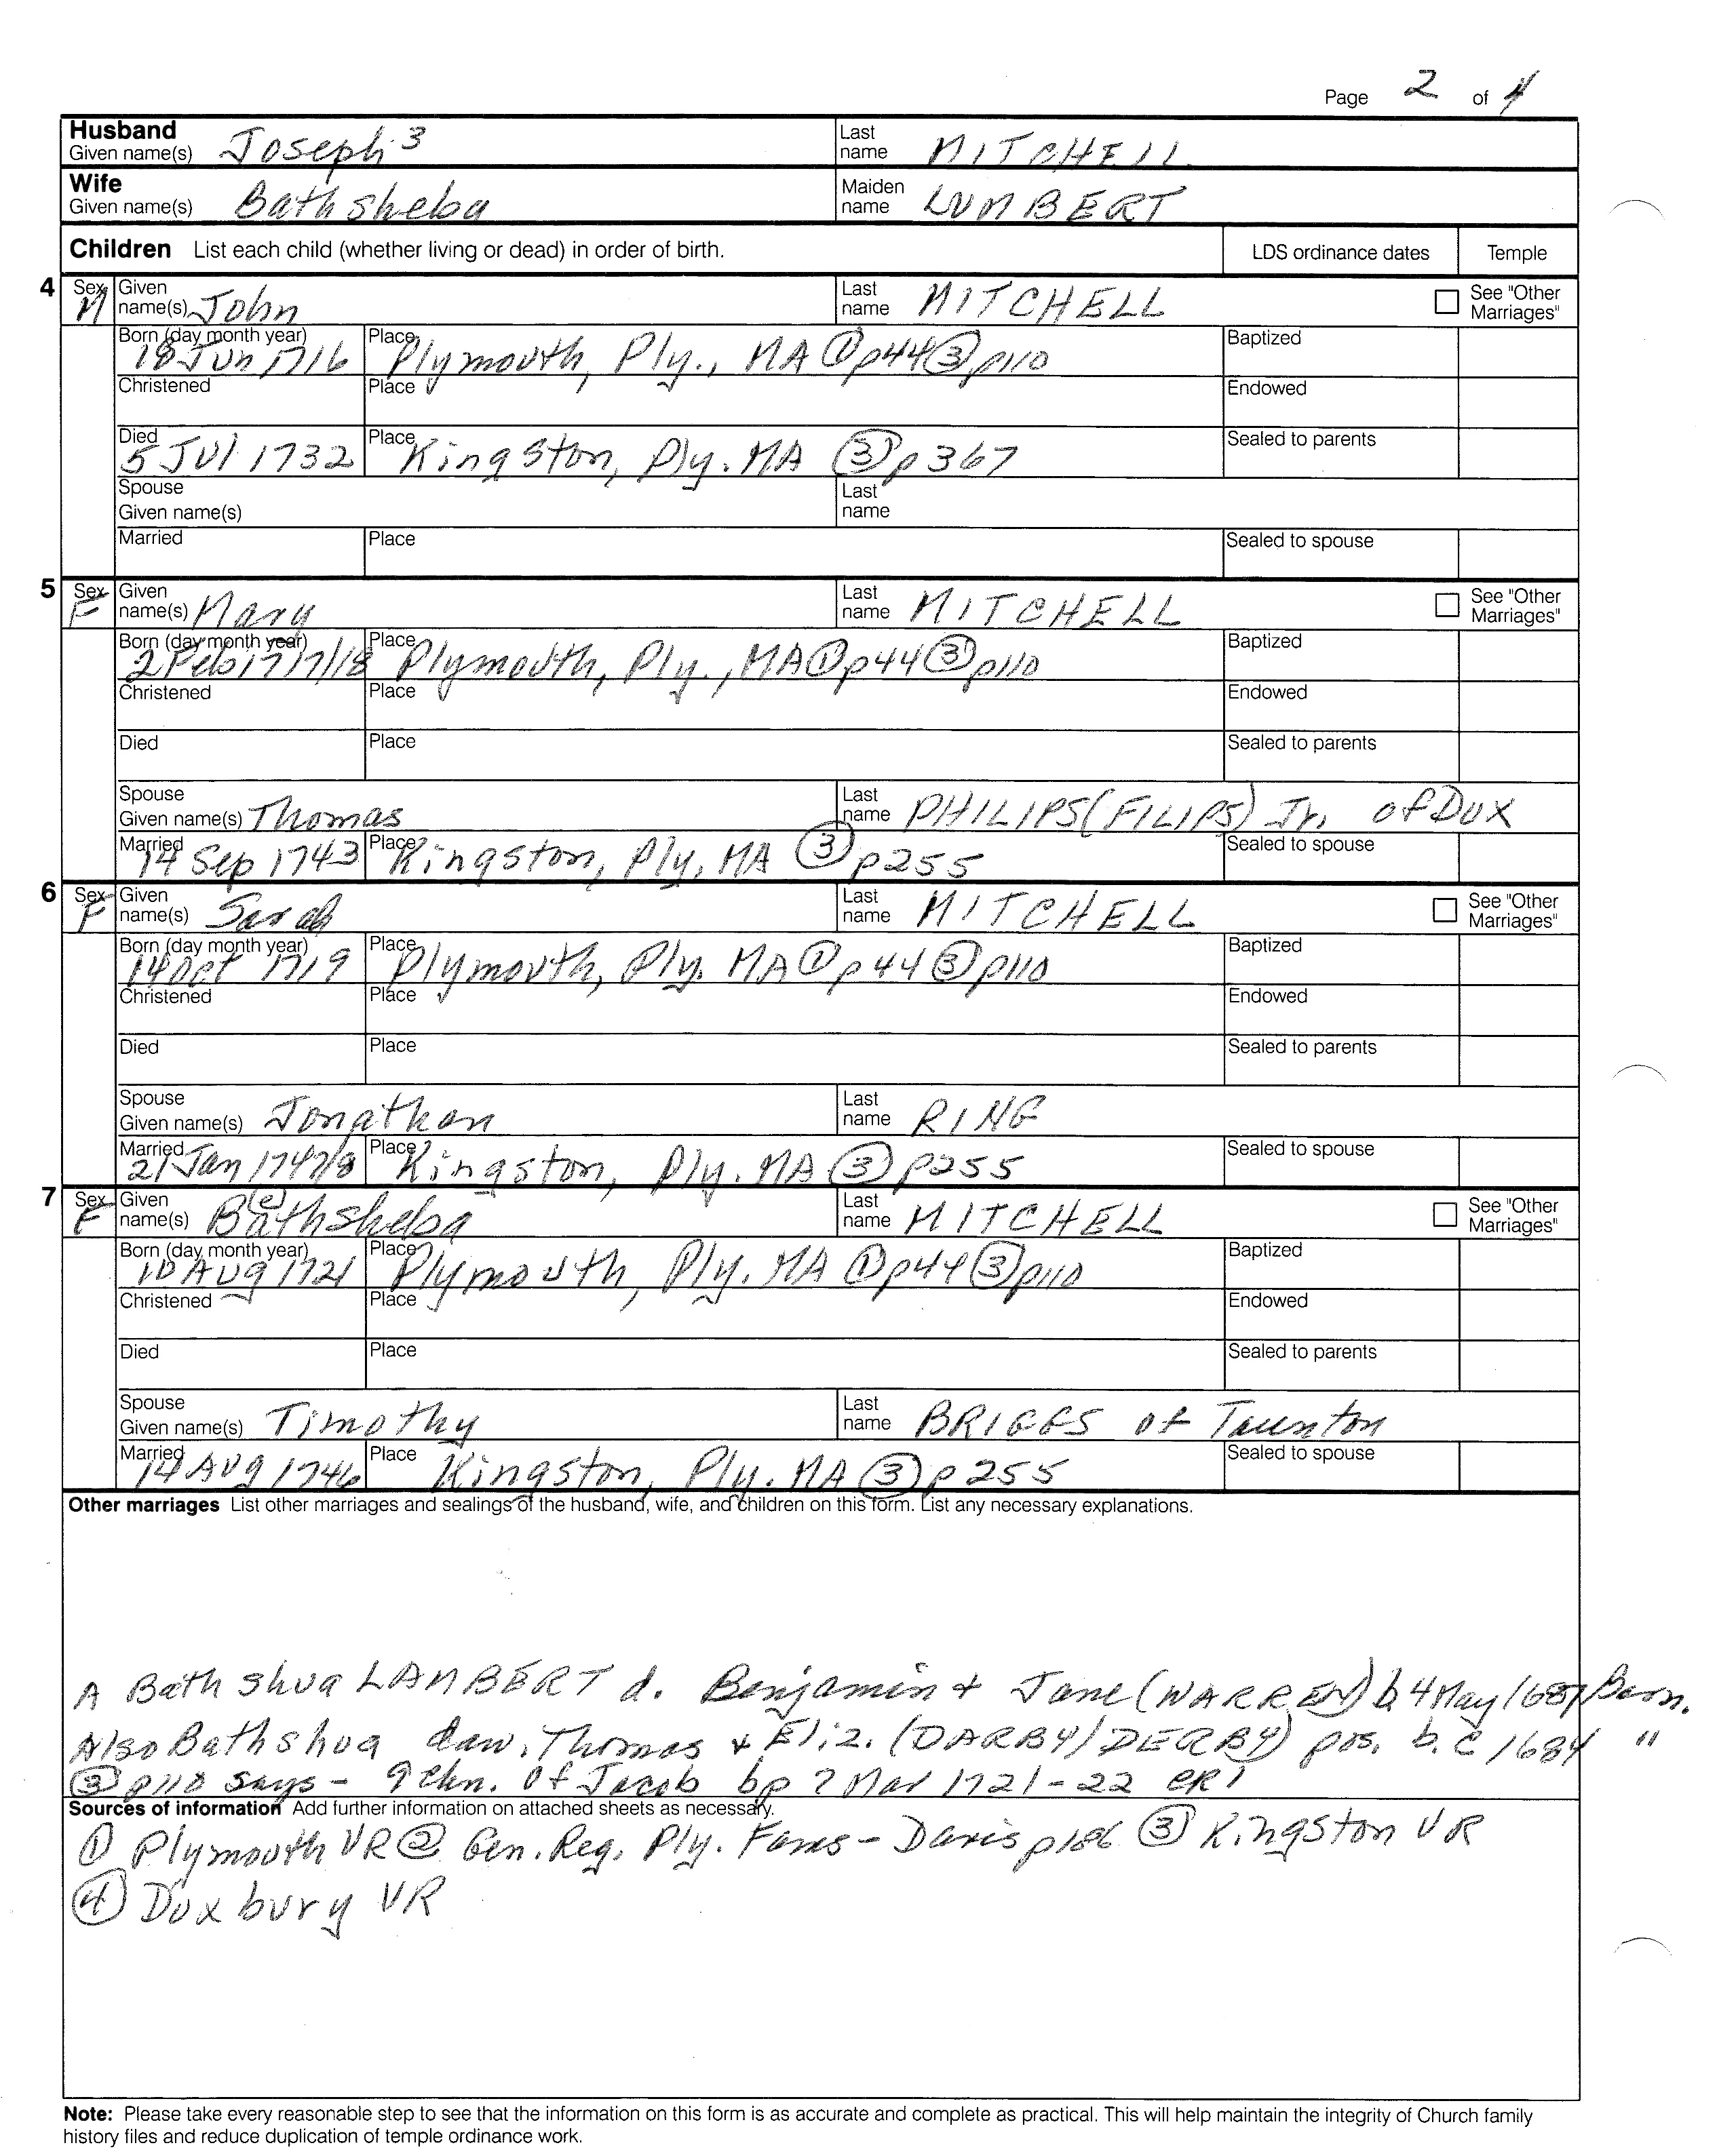 Page 2 of 4
Husband Given name(s) Joseph 3 Last name MITCHELL
Wife Given name(s) Bathsheba Maiden name LUMBERT
Children List each child (whether living or dead) in order of birth. LDS ordinance dates Temple
4 Sex M Given name(s) John Last name MITCHELL See "Other Marriages"
Born (day month year) 18 Jun 1716 Place Plymouth, Ply., MA ① p44 ③ p110 Baptized
Christened Place Endowed
Died 5 Jul 1732 Place Kingston, Ply. MA ③ p367 Sealed to parents
Spouse Given name(s) Last name
Married Place Sealed to spouse
5 Sex F Given name(s) Mary Last name MITCHELL See "Other Marriages"
Born (day month year) 2 Feb 1717/18 Place Plymouth, Ply., MA ① p44 ③ p110 Baptized
Christened Place Endowed
Died Place Sealed to parents
Spouse Given name(s) Thomas Last name PHILIPS (FILIPS) Jr. of Dux
Married 14 Sep 1743 Place Kingston, Ply, MA ③ p255 Sealed to spouse
6 Sex F Given name(s) Sarah Last name MITCHELL See "Other Marriages"
Born (day month year) 14 Oct 1719 Place Plymouth, Ply. MA ① p44 ③ p110 Baptized
Christened Place Endowed
Died Place Sealed to parents
Spouse Given name(s) Jonathan Last name RING
Married 21 Jan 1747/8 Place Kingston, Ply. MA ③ p255 Sealed to spouse
7 Sex F Given name(s) Ba(e)thsheba Last name MITCHELL See "Other Marriages"
Born (day month year) 10 Aug 1721 Place Plymouth, Ply. MA ① p44 ③ p110 Baptized
Christened Place Endowed
Died Place Sealed to parents
Spouse Given name(s) Timothy Last name BRIGGS of Taunton
Married 14 Aug 1746 Place Kingston, Ply. MA ③ p255 Sealed to spouse
Other marriages List other marriages and sealings of the husband, wife, and children on this form. List any necessary explanations.
A Bathshua LAMBERT d. Benjamin + Jane (WARREN) b. 4 May 1687 Barn.
Also Bathshua daw. Thomas + Eliz. (DARBY/DERBY) pos. b. c 1684 "
③ p110 says - 9 chn. of Jacob bp ? Mar 1721-22 CR1
Sources of information Add further information on attached sheets as necessary.
① Plymouth VR ② Gen. Reg. Ply. Fams - Davis p186 ③ Kingston VR
④ Duxbury VR
Note: Please take every reasonable step to see that the information on this form is as accurate and complete as practical. This will help maintain the integrity of Church family
history files and reduce duplication of temple ordinance work.